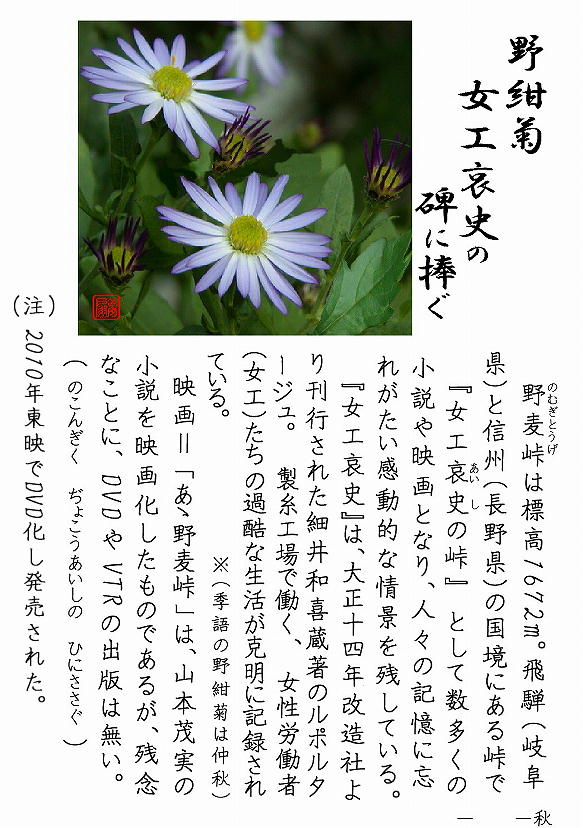 野紺菊
女工哀史の
碑に捧ぐ
野麦峠は標高1672m。飛騨(岐阜
のむぎとうげ
県)と信州(長野県)の国境にある峠で
『女工哀史の峠』 として数多くの
あい し
小説や映画となり、人々の記憶に忘
れがたい感動的な情景を残している。
『女工哀史』は、大正十四年改造社よ
り刊行された細井和喜蔵著のルポルタ
ージュ。 製糸工場で働く、 女性労働者
(女工)たちの過酷な生活が克明に記録され
ている。
※(季語の野紺菊は仲秋)
映画=「あゝ野麦峠」は、山本茂実の
小説を映画化したものであるが、残念
なことに、DVDやVTRの出版は無い。
(のこんぎく ぢょこうあいしの ひにささぐ)
(注) 2010年東映でDVD化し発売された。
―秋
―